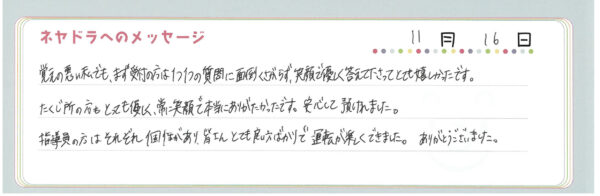 ネヤドラへのメッセージ 11月 16日
覚えの悪い私でも、まず受付の方は1つ1つの質問に面倒くさがらず、笑顔で優しく答えて下さってとても嬉しかったです。
たくじ所の方もとっても優しく、常に笑顔で本当にありがたかったです。安心して預けれました。
指導員の方はそれぞれ個性があり、皆さんとても良い方ばかりで運転が楽しくできました。ありがとうございました。